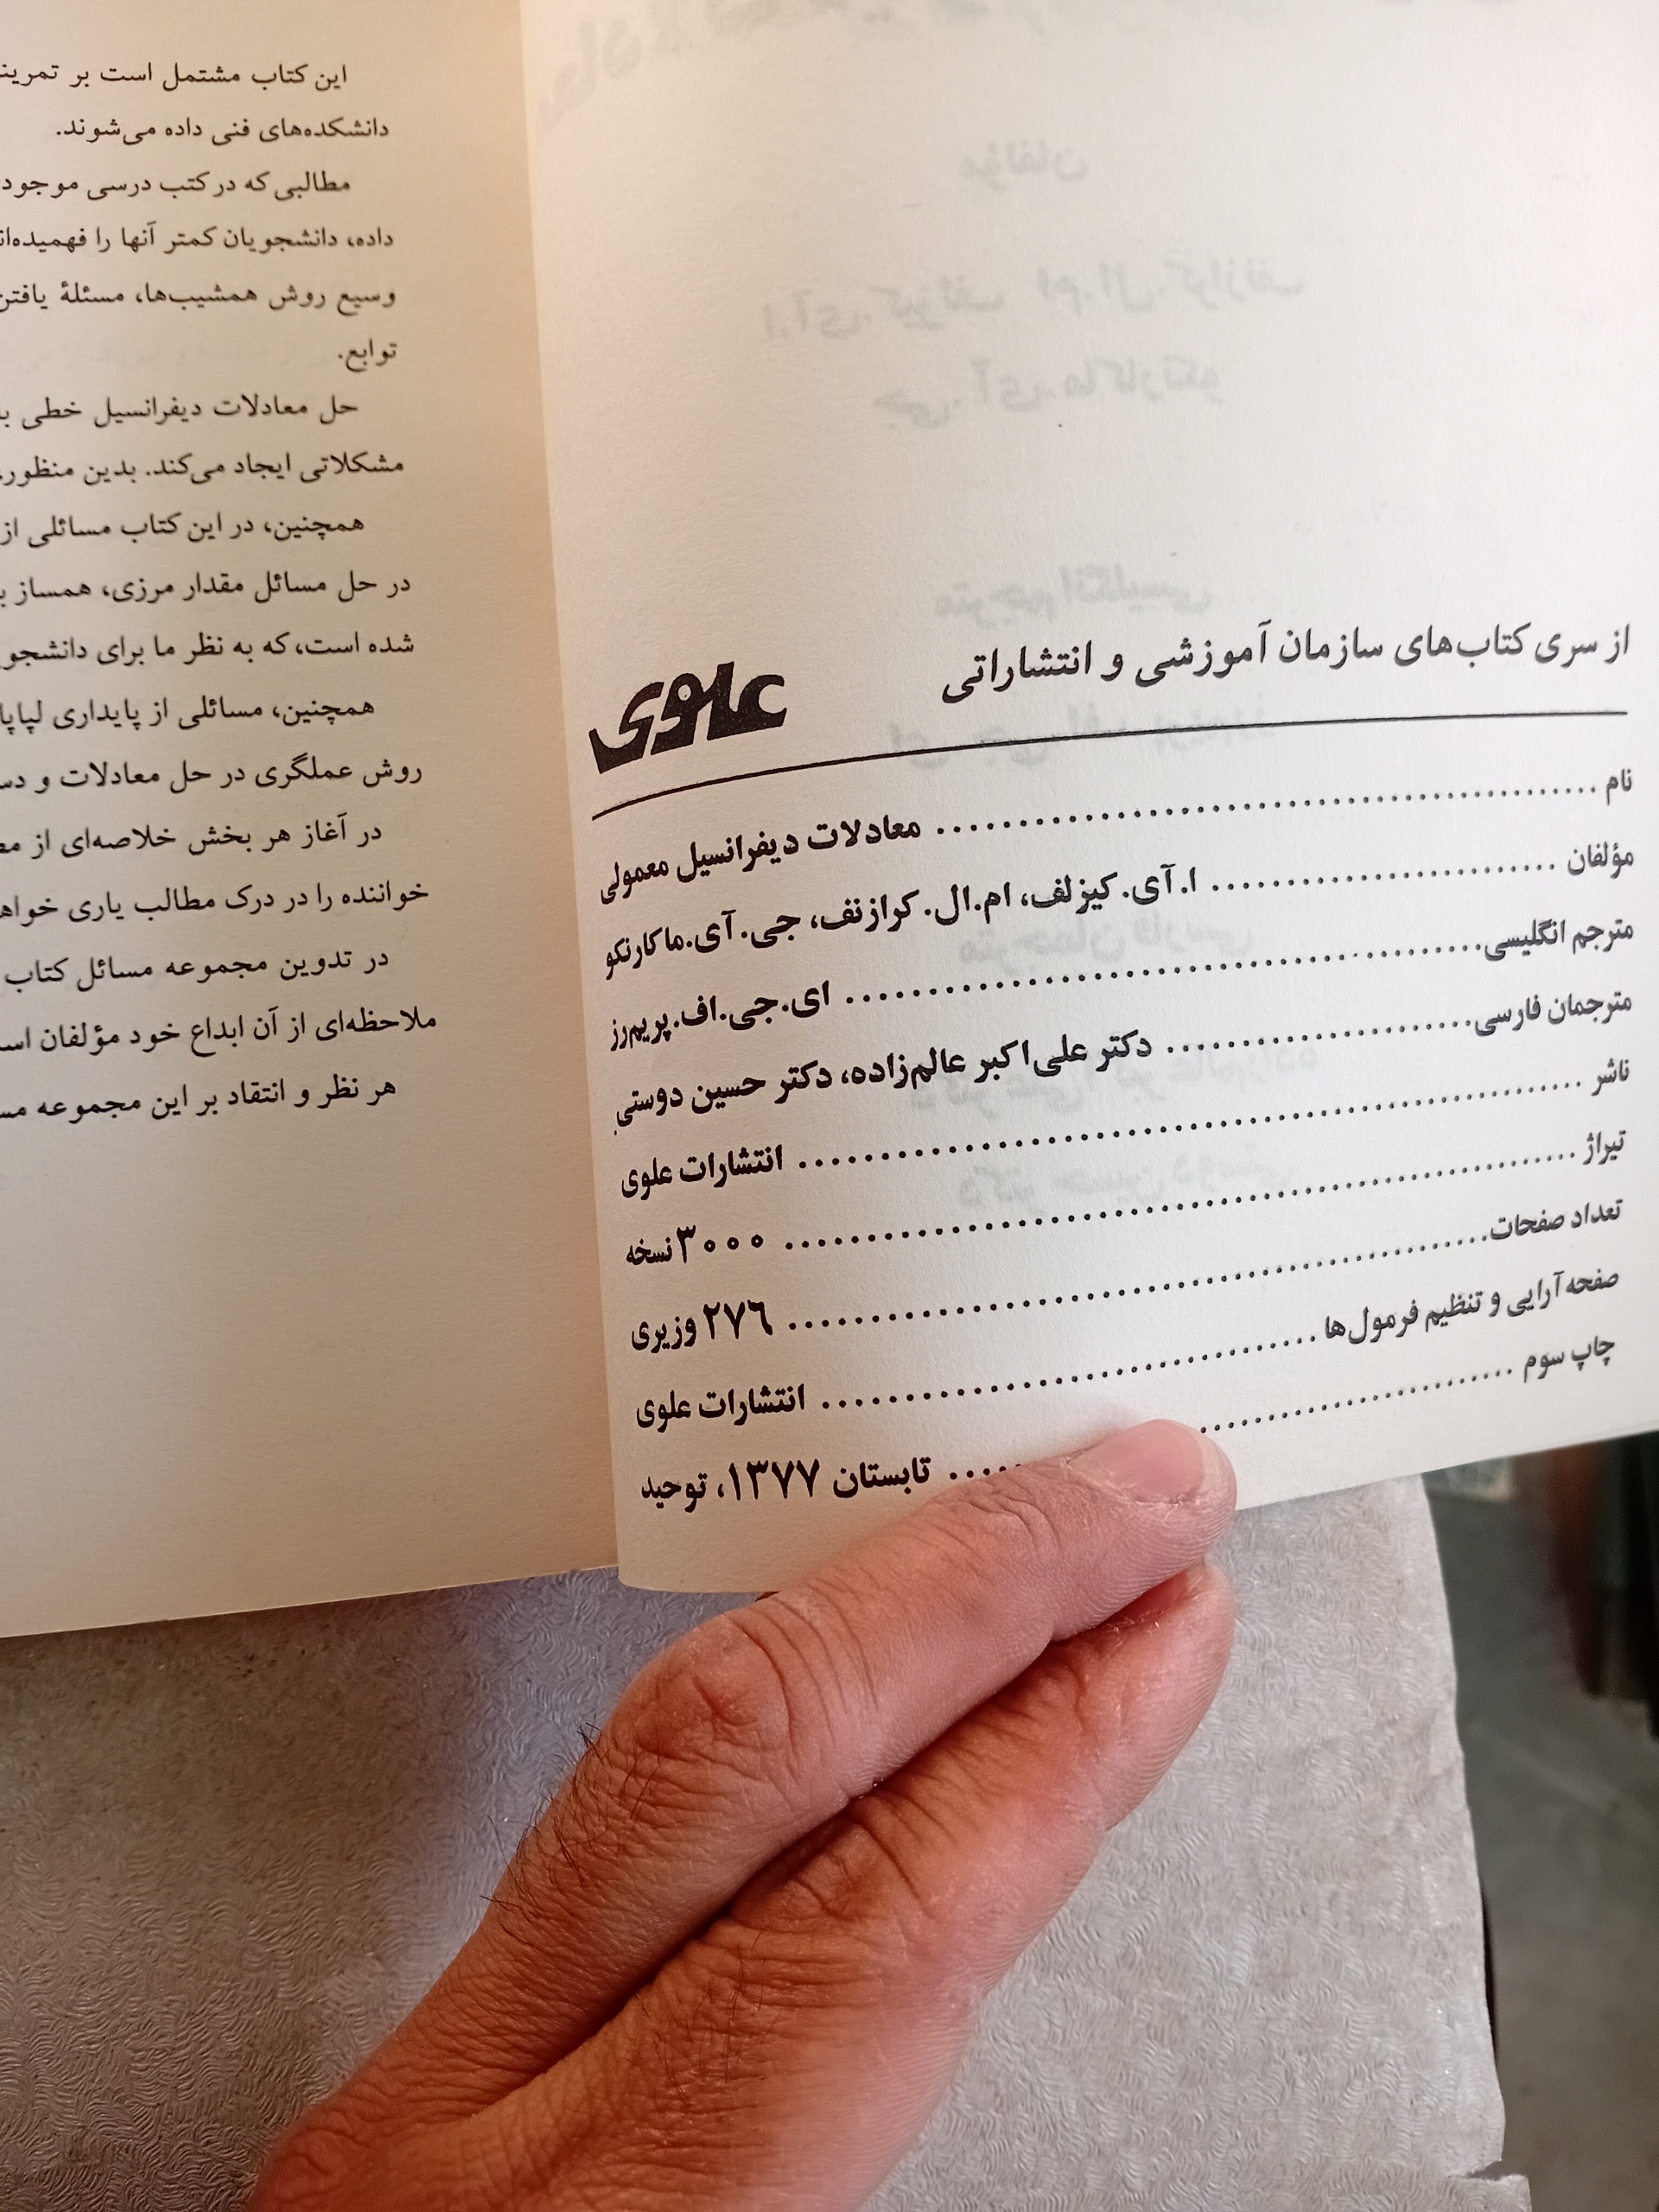 از سری کتاب‌های سازمان آموزشی و انتشاراتی علوی
نام ........ معادلات دیفرانسیل معمولی
مؤلفان ........ ا.آی. کیزلف، ام.ال. کرازنف، جی. آی.ماکارنکو
مترجم انگلیسی ........ ای.جی.اف.پریم‌رز
مترجمان فارسی ........ دکتر علی‌اکبر عالم‌زاده، دکتر حسین دوستی
ناشر ........ انتشارات علوی
تیراژ ........ ۳۰۰۰ نسخه
تعداد صفحات ........ ۲۷۶ وزیری
صفحه آرایی و تنظیم فرمول‌ها ........ انتشارات علوی
چاپ سوم ........ تابستان ۱۳۷۷، توحید
این کتاب مشتمل است بر
دانشکده‌های فنی داده می‌شوند.
مطالبی که در کتب درسی موجود
داده، دانشجویان کمتر آنها را
وسیع روش همشیب‌ها، مسئلهٔ یافتن
توابع.
حل معادلات دیفرانسیل خطی
مشکلاتی ایجاد می‌کند. بدین منظور
همچنین، در این کتاب مسائلی از
در حل مسائل مقدار مرزی، همساز
شده است، که به نظر ما برای
همچنین، مسائلی از پایداری
روش عملگری در حل معادلات و
در آغاز هر بخش خلاصه‌ای از
خواننده را در درک مطالب یاری
در تدوین مجموعه مسائل کتاب
ملاحظه‌ای از آن ابداع خود مؤلفان
هر نظر و انتقاد بر این مجموعه